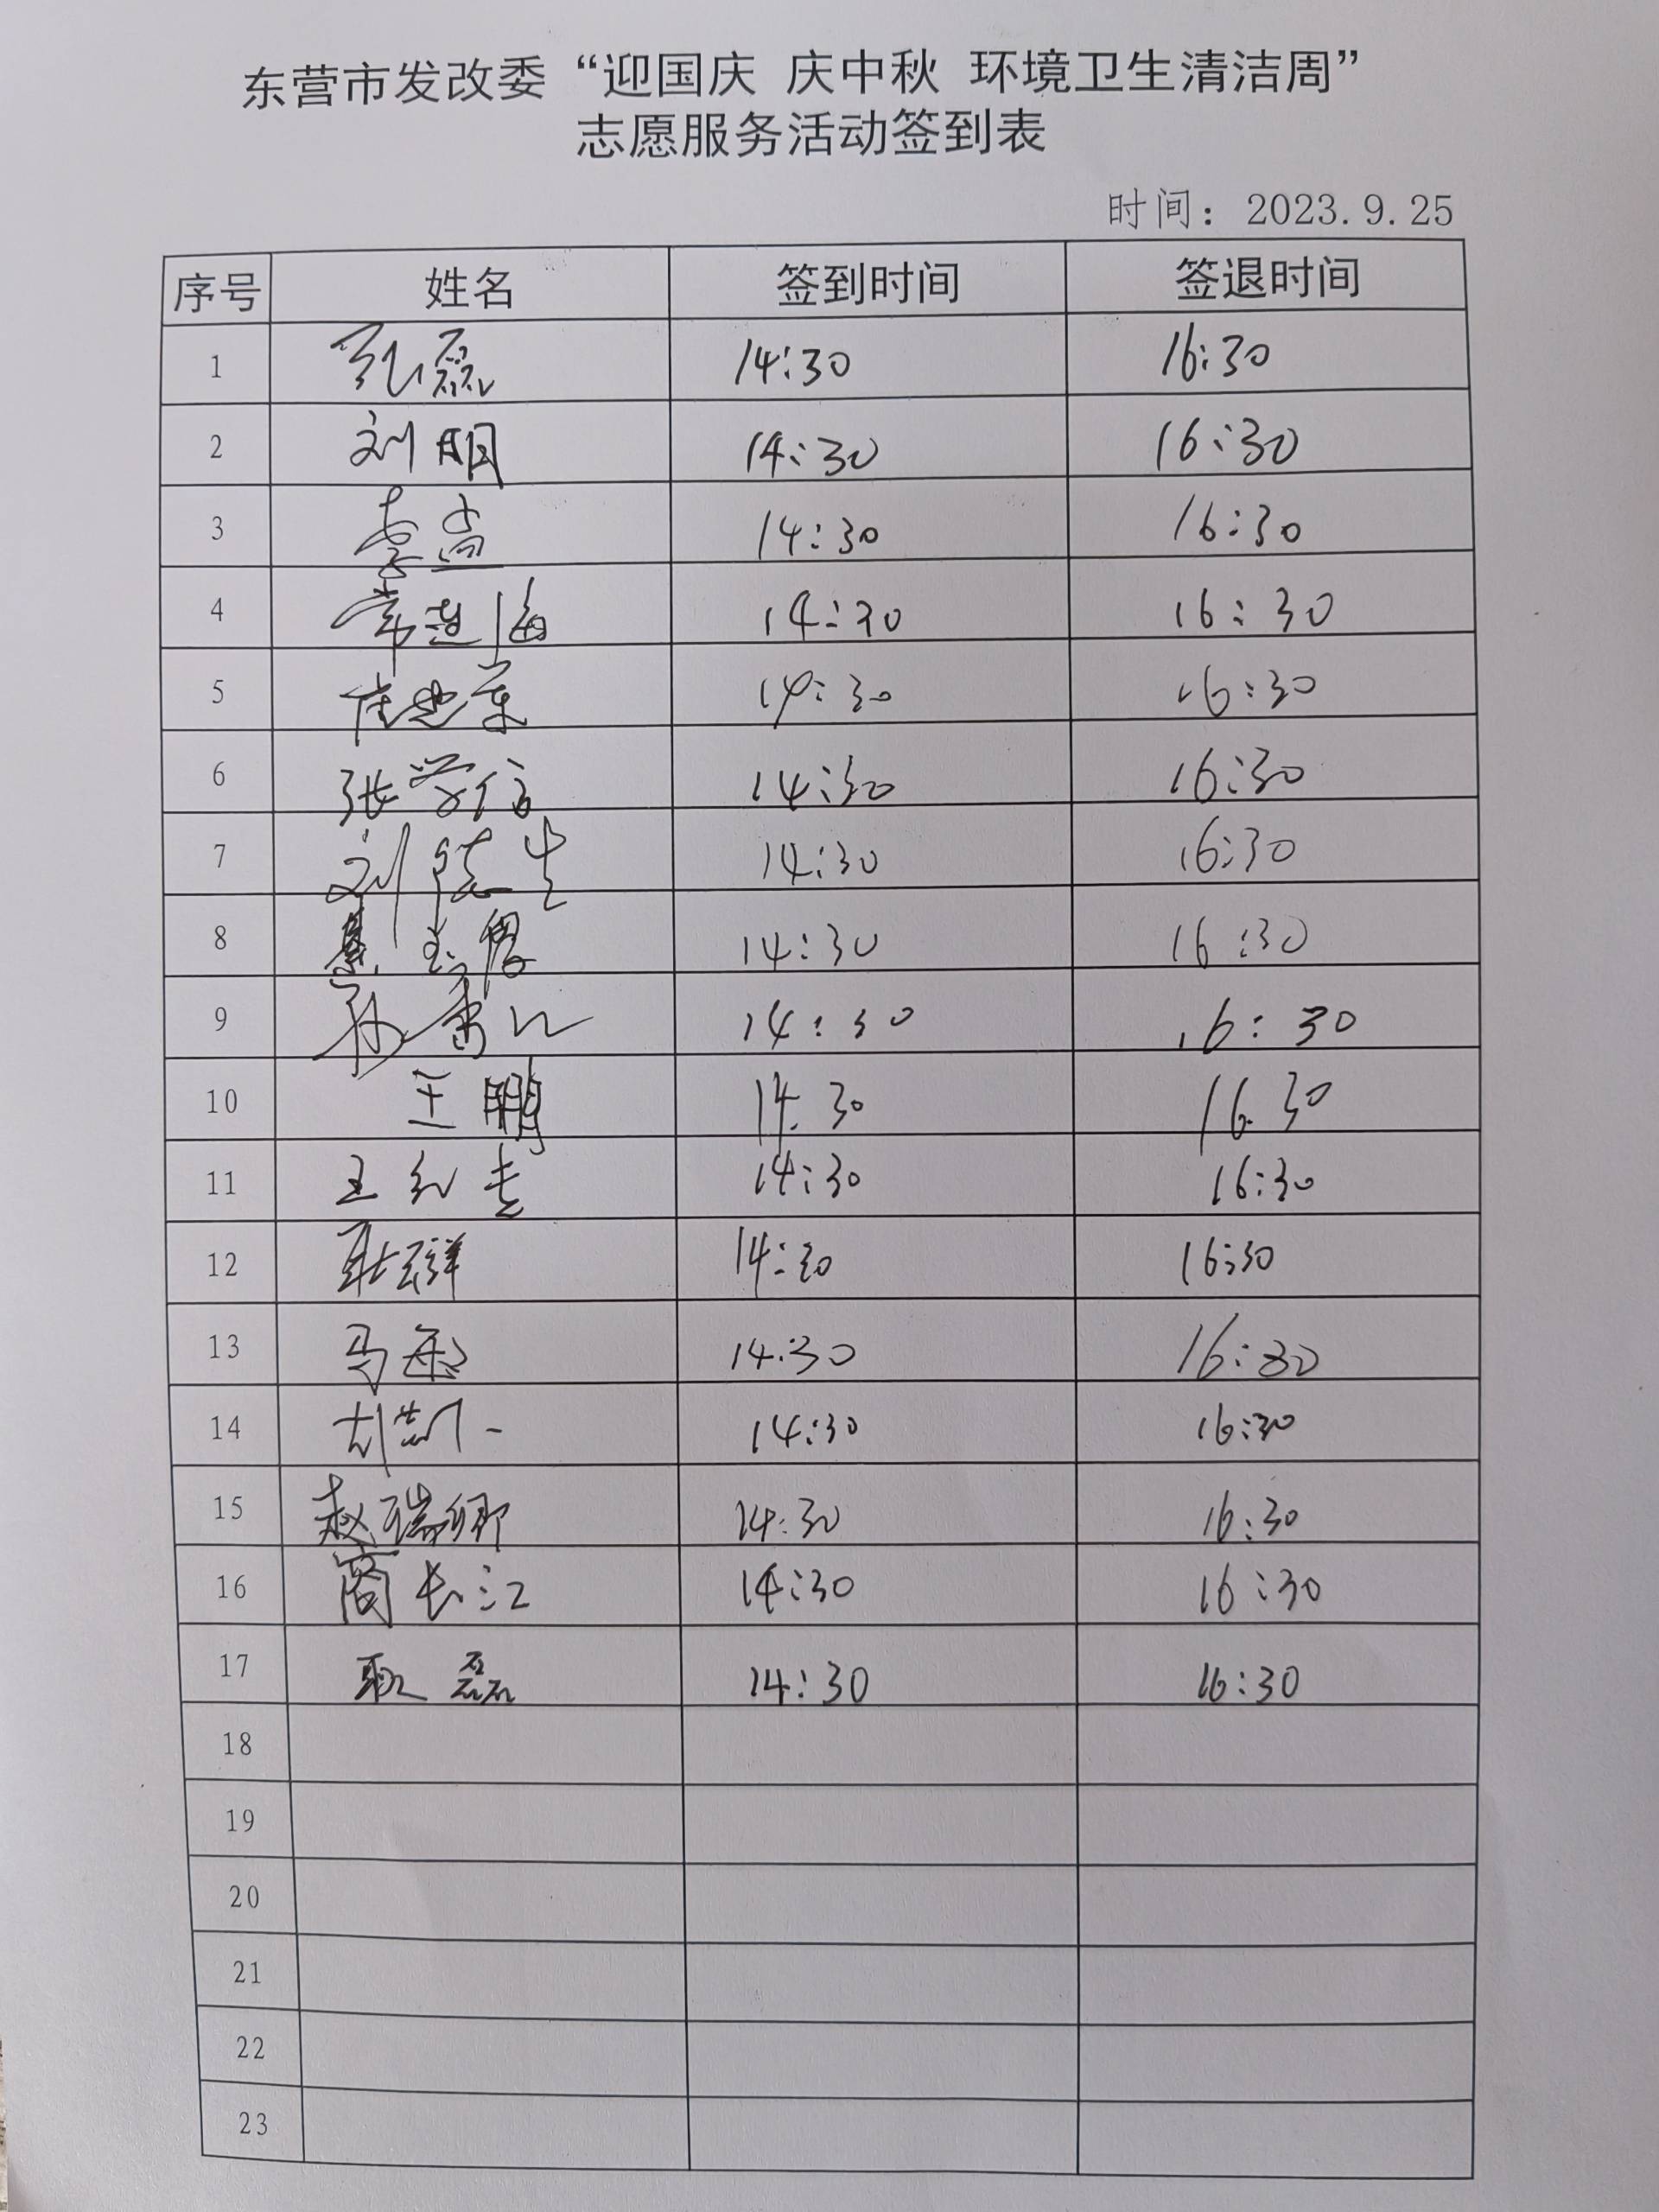 东营市发改委“迎国庆 庆中秋 环境卫生清洁周”
志愿服务活动签到表
时间：2023.9.25
序号 姓名 签到时间 签退时间
1 孔磊 14:30 16:30
2 刘明 14:30 16:30
3 李孟 14:30 16:30
4 常连海 14:30 16:30
5 14:30 16:30
6 张学信 14:30 16:30
7 刘 生 14:30 16:30
8 14:30 16:30
9 孙 14:30 16:30
10 王鹏 14:30 16:30
11 王红 14:30 16:30
12 耿祥 14:30 16:30
13 马 14:30 16:30
14 14:30 16:30
15 赵瑞卿 14:30 16:30
16 商长江 14:30 16:30
17 耿磊 14:30 16:30
18
19
20
21
22
23